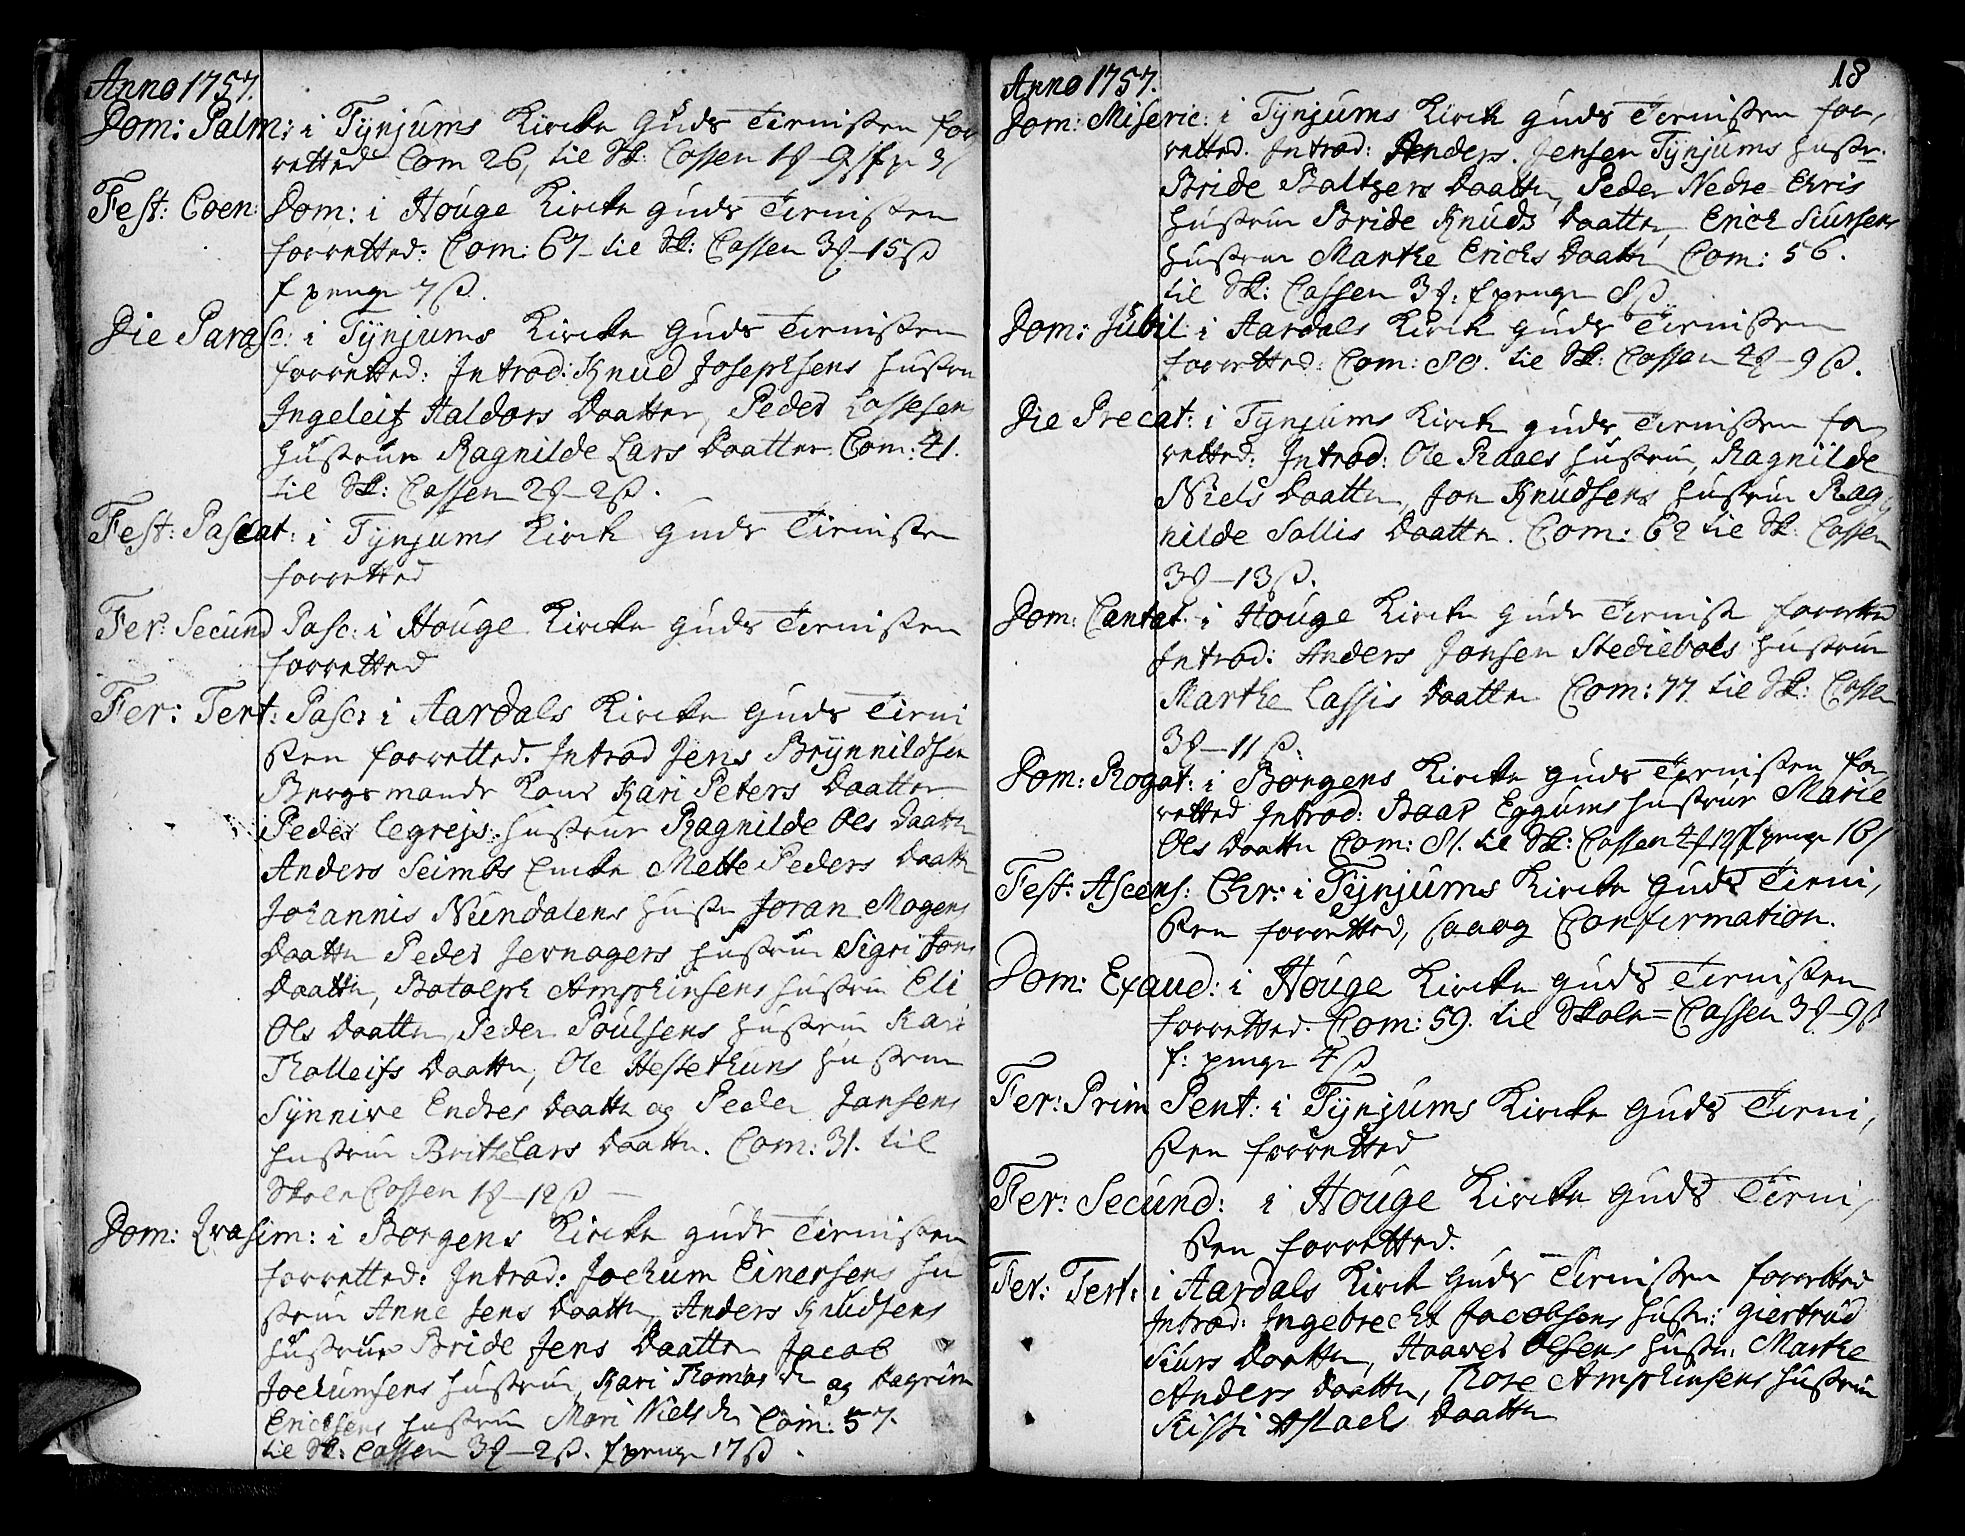 Anno 1757.
Dom: Palm: i Tÿnjums Kircke Guds Tienisten for
retted Com 26, til Sk: Cassen
Fest: Coen: Dom: i Houge Kircke Guds Tienisten
forretted: Com: 67 til Sk: Cassen 3 – 15 ß
f penge 7 ß.
Die Parasc: i Tÿnjums Kircke Guds Tienisten
forretted: Introd: Knud Josephsens Hustru
Ingeleif Haldors Daatter, Peder Lassesen
Hustrue Ragnilde Lars Daatter Com: 41.
til Sk: Cassen 2 – 2 ß.
Fest: Pascat: i Tÿnjums Kirck Guds Tienisten
forretted
Fer: Secund Pasc: i Houge Kircke Guds Tienisten
forretted
Fer: Tert: Pasc: i Aardals Kircke Guds Tieni
sten forretted. Introd Jens Brÿnnildsen
Bergmands Kone Kari Peters Daatter
Peder Legrejs Hustrue Ragnilde Ols Daatter
Anders Seimbs Encke Mette Peders Daatt
Johannis Nundalens Hustr Joran Mogens
Daatter Peder Jernagers Hustrue Sigri Jons
Daatter, Botolph Amphinsens Hustru Eli
Ols Daatter, Peder Poulsens Hustrue Kari
Tholleifs Daatter, Ole Hessethuns Hustrue
Sÿnnive Endres Daatter og Peder Jansens
Hustrue Brithe Lars Daatter. Com: 31. til
Skole Cassen 1 – 12 ß –
Dom: Qvasim: i Borgens Kircke Guds Tienisten
forretted: Introd: Jochum Einersens Hu
strue Anne Jens Daatter, Anders Knudsens
Hustrue Bride Jens Daatter Jacob
Jochumsens Hustrue, Kari Thomas D: og
Ericksens Hustrue Mari Niels D: Com: 57.
til Sk: Cassen 3 – 2 ß. f penge 17 ß.
18
Anno 1757.
Dom: Miseric: i Tÿnjums Kirck Guds Tienisten for,
retted. Introd: Anders Jensen Tÿnjums Hustr:
Bride Baltzers Daatter, Peder Nedre Chris
Hustrue Bride Knuds Daatter, Erick Siursens
Hustrue Marthe Ericks Daatter Com: 56.
til Sk: Cassen 3: f penge 8 ß.
Dom: Jubil: i Aardals Kirck Guds Tienisten
forretted: Com: 80. til Sk: Cassen 4 – 9 ß.
Die Precat: i Tÿnjums Kirck Guds Tienisten for
retted: Introd: Ole Raaes Hustrue, Ragnilde
Niels Daatter, Jon Knudsens Hustrue Rag,
nilde Sallis Daatter. Com: 62 til Sk: Cassen
3 – 13 ß.
Dom: Cantat: i Houge Kircke Guds Tienist forretted
Introd: Anders Jonsen Stediebols Hustrue
Marthe Lassis Daatter Com: 77. til Sk: Cassen
3 – 11 ß.
Dom: Rogat: i Borgens Kircke Guds Tienisten for,
retted Introd: Baar Eggums Hustrue Marie
Ols Daatter Com: 81. til Sk: Cassen penge 16
Fest: Ascens: Chr: i Tÿnjums Kircke Guds Tieni,
sten forretted, saaog Confirmation.
Dom: Exaud: i Houge Kircke Guds Tienisten
forretted. Com: 59. til Skole=Cassen 3 – 9 ß
f: penge 4 ß
Fer: Prim Pent: i Tÿnjums Kircke Guds Tieni,
sten forretted
Fer: Secund: i Houge Kircke Guds Tieni,
sten forretted.
Fer: Tert: i Aardals Kirck Guds Tienisten forretted
Introd: Ingebrecht Jacobsens Hustr: Giertrud
Siurs Daatter, Haaver Olsens Hustr: Marthe
Anders Daatter, Thore Amphinsens Hustrue
Kisti Aslaels Daatter